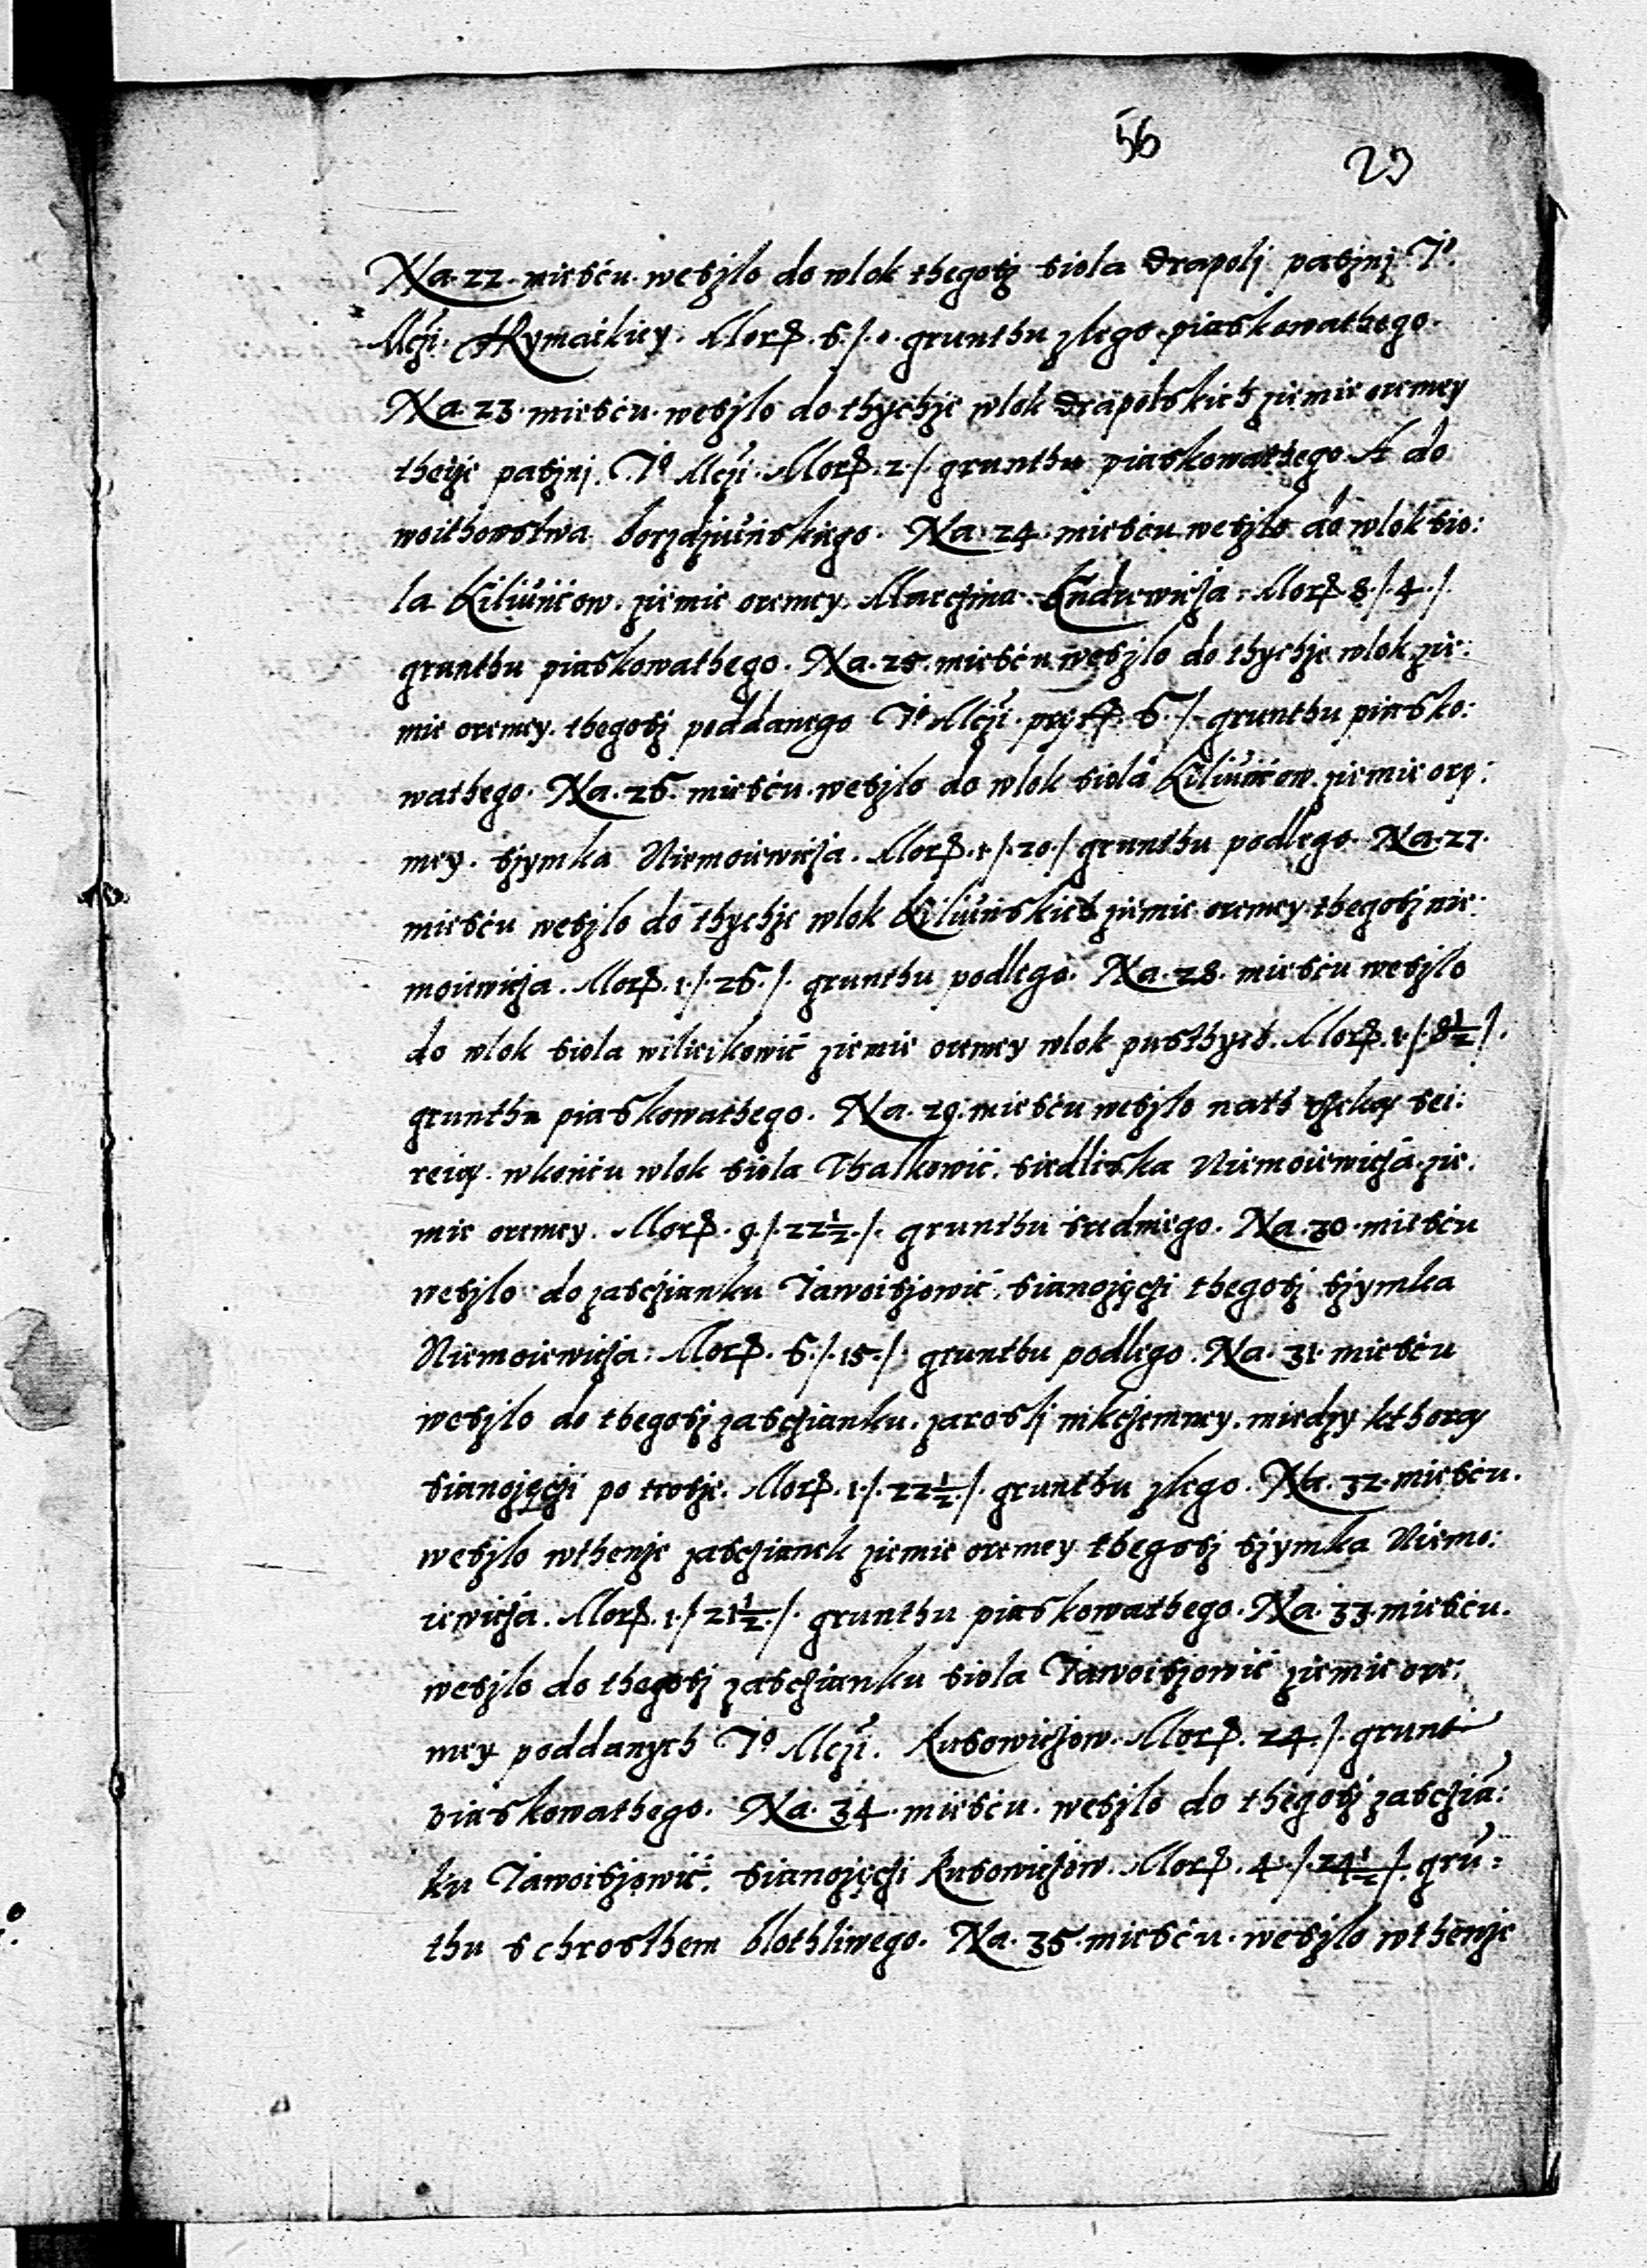 56
29
Na. 22. miesću. weszlo do wlok thegosz siola Drapoli paszni Jº.
Mczi. Rymaickiey. Morg. 6./.0. grunthu zlego. piaskowathego.
Na. 23. miesću. weszlo do thychze wlok Drapolskich ziemie oremey
theyze paszni. Jº Mczi. Morg. 2./. grunthu piaskowathego. A do
woithowstwa borzdziuńskiego. Na. 24. miesću weszlo do wlok sio:
la Kiliuńćow. ziemie oremey. Marczina Endrewicza. Morg. 8./.4./.
grunthu piaskowathego. Na. 25. miesću weszlo do thychze wlok zie:
mie oremey. thegosz poddanego Jº Mczi. 6./. grunthu piasko:
wathego. Na. 26. miesću. weszlo do wlok siola Kiliuńćow. ziemie ore:
mey. szymka Niemoiewicza. Morg. 1./.20./ grunthu podlego. Na. 27.
miesću weszlo do thychze wlok Kiliuńskich ziemie oremey thegosz nie:
moiewicza. Morg. 1./.26./. grunthu podlego. Na. 28. miesću weszlo
do wlok siola wilieikowić ziemie oremey wlok pusthych. Morg. 1./.8½/.
grunthu piaskowathego. Na. 29. miesću weszlo nath rzeką sei:
reią. wkońću wlok siola Thalkowić. siedliska Niemoiewicza. zie:
mie oremey. Morg. 9./.22½./. grunthu średniego. Na. 30. miesću
weszlo do zasczianku Jawoiszowić. sianozęczi thegosz szymka
Niemoiewicza. Morg. 6./.15./. grunthu podlego. Na. 31. miesću
weszlo do thegosz zasczianku. zarosli nikczemney. miedzy kthorą
sianozęczi po trosze. Morg. 1./.22½./. grunthu zlego. Na. 32. miesću.
weszlo wthenze zascianek ziemie oremey thegosz szymka Niemo:
iewicza. Morg. 1./.21½./. grunthu piaskowathego. Na. 33. miesću.
weszlo do thegosz zasczianku siola Jawoiszowić ziemie ore:
mey poddanych Jº Mczi. Kusowiczow. Morg. 24./. grunt
piaskowathego. Na. 34. miesću. weszlo do thegosz zasczia:
ku Jawoiszowić. sianozęczi Kusowiczow. Morg. 4./.24½./. grū:
thu s chrosthem blothliwego. Na. 35. miesću. weszlo wthenze